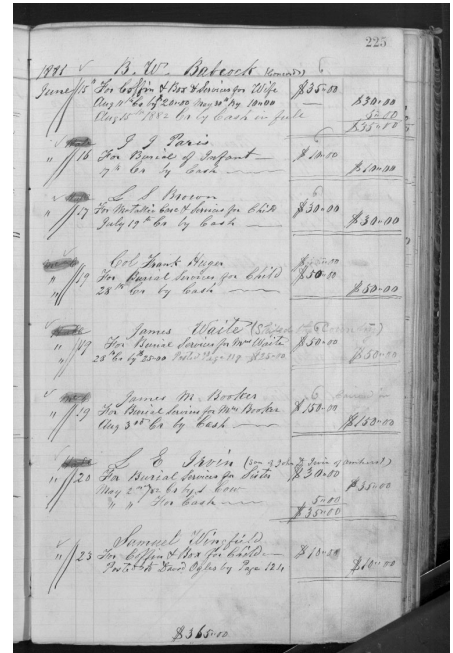 225
1881 B. W. Babcock
June 15th For Coffin & Box & Services for Wife $35.00
Aug 11th Cr by 20.00 May 20th by 10.00 $30.00
Aug 15th 1882 Cr by Cash in full 5.00
$35.00
J J Paris
" 16 For Burial of Infant $10.00
17th Cr by Cash $10.00
L S Brown
" 17 For Metallic Case & Services for Child $30.00
July 19th Cr by Cash $30.00
Col Frank Huger
" 19 For Burial Services for Child $50.00
28th Cr by Cash $50.00
James Waite
" 19 For Burial Services for Mrs Waite $50.00
25th Cr by 25.00 Posted Page 119 $25.00 $50.00
James M. Booker
" 19 For Burial Services for Mrs Booker $150.00
Aug 3rd Cr by Cash $150.00
L E Irvin (Son of John Irvin of Amherst)
" 20 For Burial Services for Sister $30.00
May 2nd Cr by 1 Cow $35.00
" " For Cash 5.00
$35.00
Samuel Wingfield
" 23 For Coffin & Box for Child $10.00
Posted to David Ogles by Page 124 $10.00
$365.00